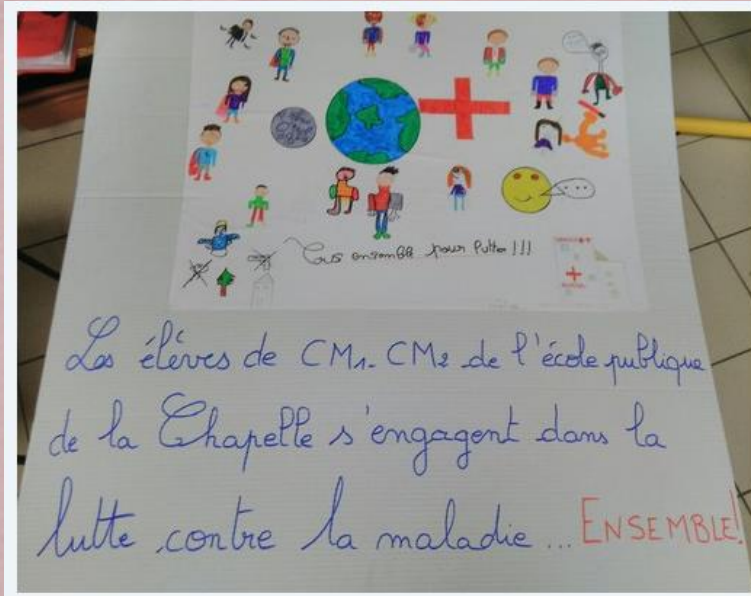 Tous ensemble pour lutter !!!
Les élèves de CM1. CM2 de l'école publique
de la Chapelle s'engagent dans la
lutte contre la maladie... ENSEMBLE!